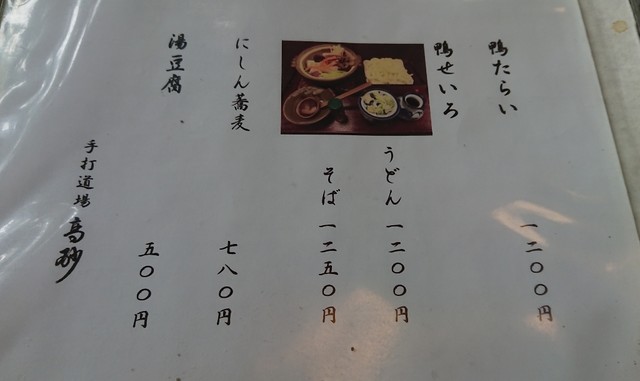 鴨たらい 一二〇〇円
鴨せいろ
うどん 一二〇〇円
そば 一二五〇円
にしん蕎麦 七八〇円
湯豆腐 五〇〇円
手打道場 高砂